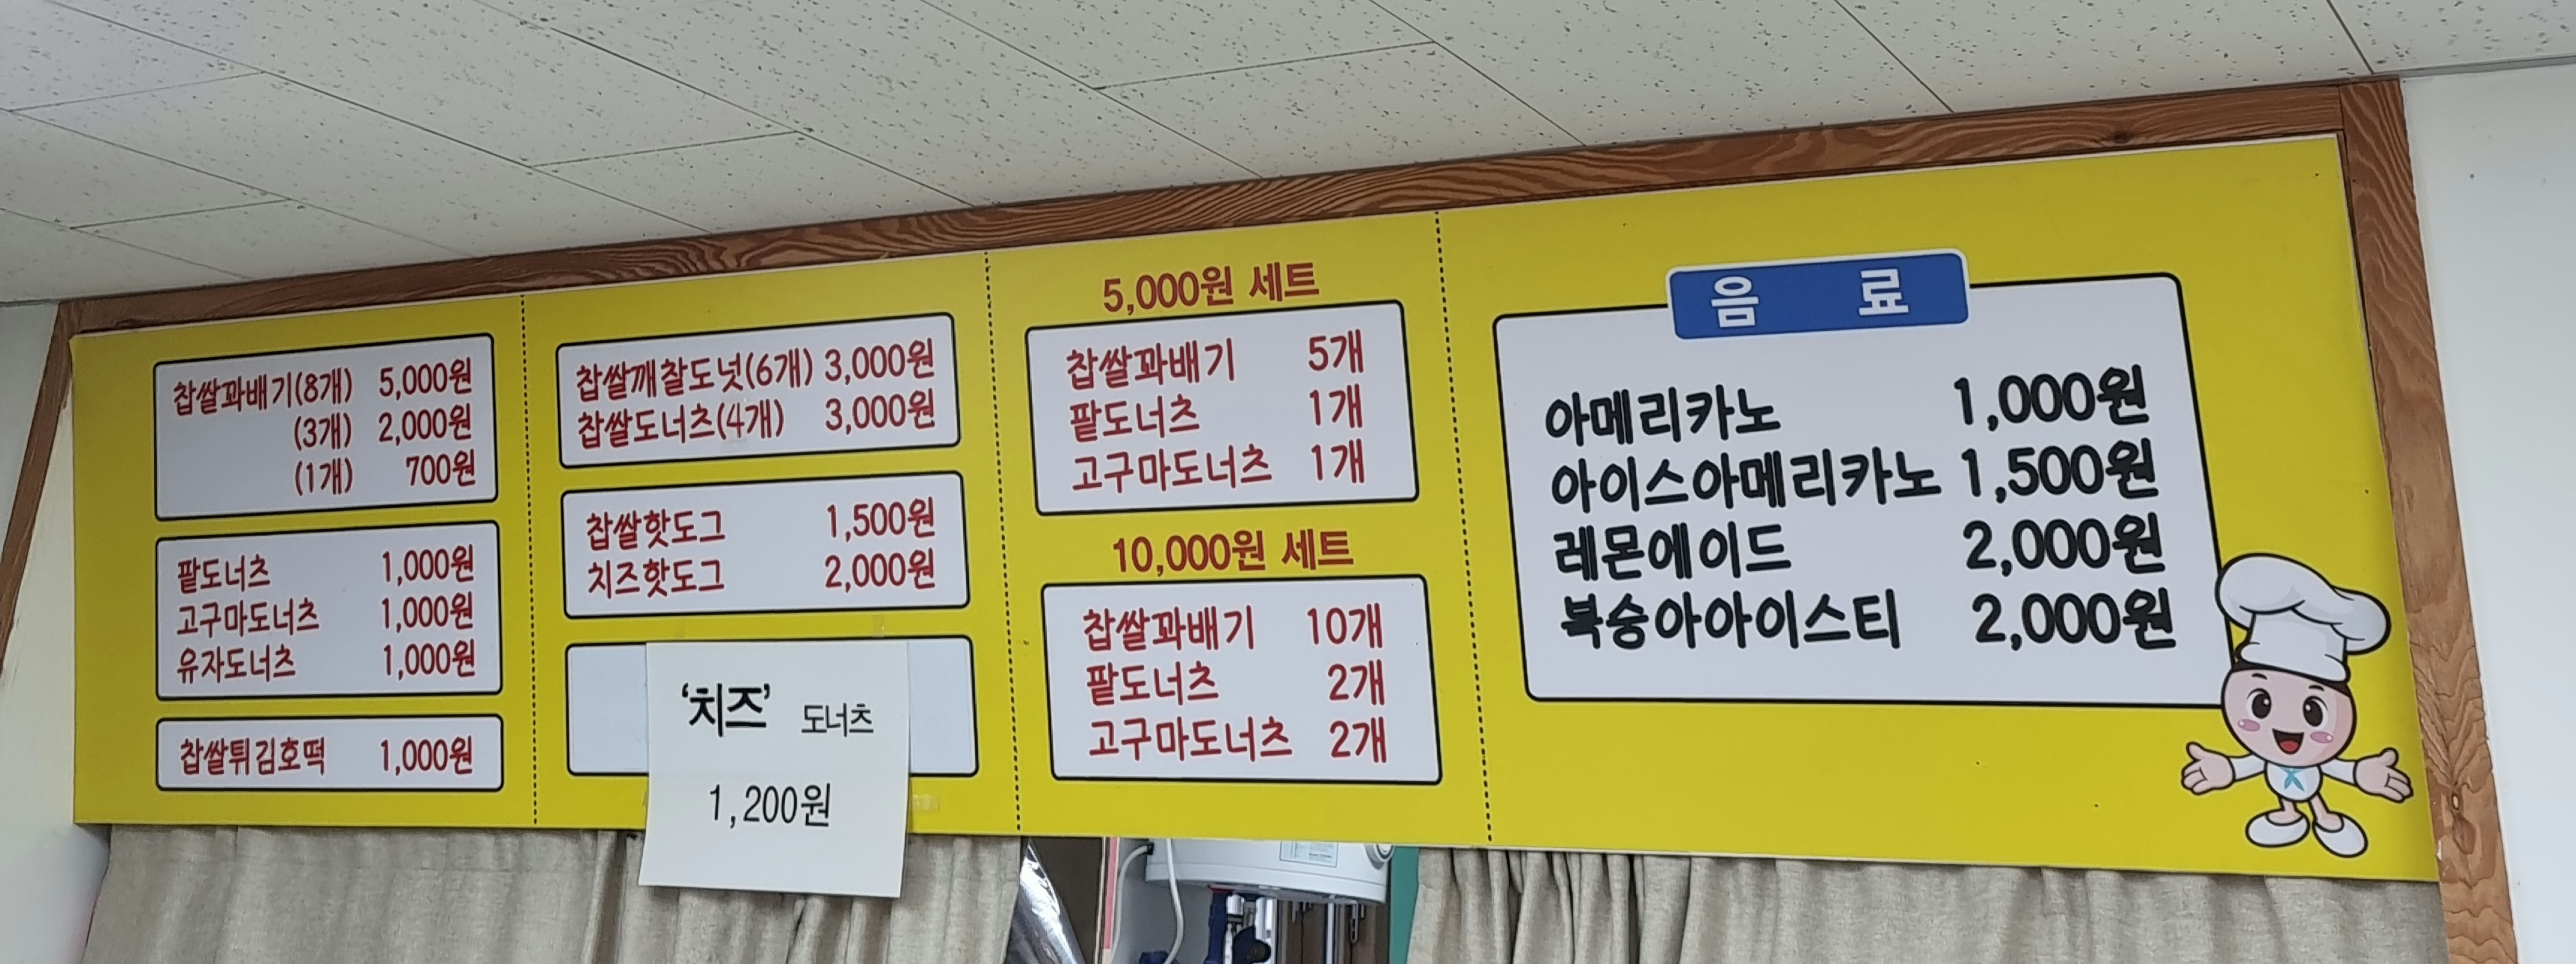 찹쌀꽈배기(8개) 5,000원
(3개) 2,000원
(1개) 700원
팥도너츠 1,000원
고구마도너츠 1,000원
유자도너츠 1,000원
찹쌀튀김호떡 1,000원
찹쌀깨찰도넛(6개) 3,000원
찹쌀도너츠(4개) 3,000원
찹쌀핫도그 1,500원
치즈핫도그 2,000원
'치즈' 도너츠
1,200원
5,000원 세트
찹쌀꽈배기 5개
팥도너츠 1개
고구마도너츠 1개
10,000원 세트
찹쌀꽈배기 10개
팥도너츠 2개
고구마도너츠 2개
음료
아메리카노 1,000원
아이스아메리카노 1,500원
레몬에이드 2,000원
복숭아아이스티 2,000원